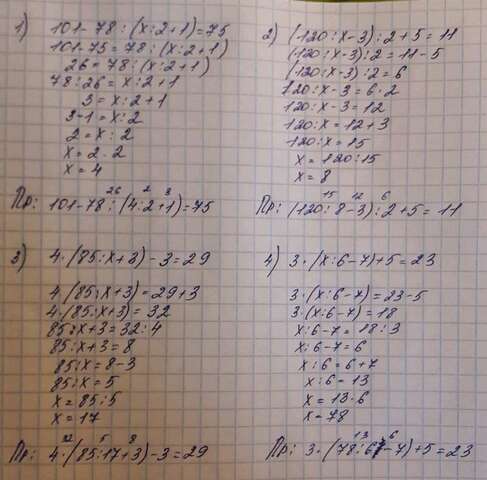 1) 101-78:(x:2+1)=75
101-75=78:(x:2+1)
26=78:(x:2+1)
78:26=x:2+1
3=x:2+1
3-1=x:2
2=x:2
x=2·2
x=4
26 2 3
Пр: 101-78:(4:2+1)=75
2) (120:x-3):2+5=11
(120:x-3):2=11-5
(120:x-3):2=6
120:x-3=6·2
120:x-3=12
120:x=12+3
120:x=15
x=120:15
x=8
15 12 6
Пр: (120:8-3):2+5=11
3) 4·(85:x+3)-3=29
4·(85:x+3)=29+3
4·(85:x+3)=32
85:x+3=32:4
85:x+3=8
85:x=8-3
85:x=5
x=85:5
x=17
32 5 8
Пр: 4·(85:17+3)-3=29
4) 3·(x:6-7)+5=23
3·(x:6-7)=23-5
3·(x:6-7)=18
x:6-7=18:3
x:6-7=6
x:6=6+7
x:6=13
x=13·6
x=78
13 6
Пр: 3·(78:6-7)+5=23